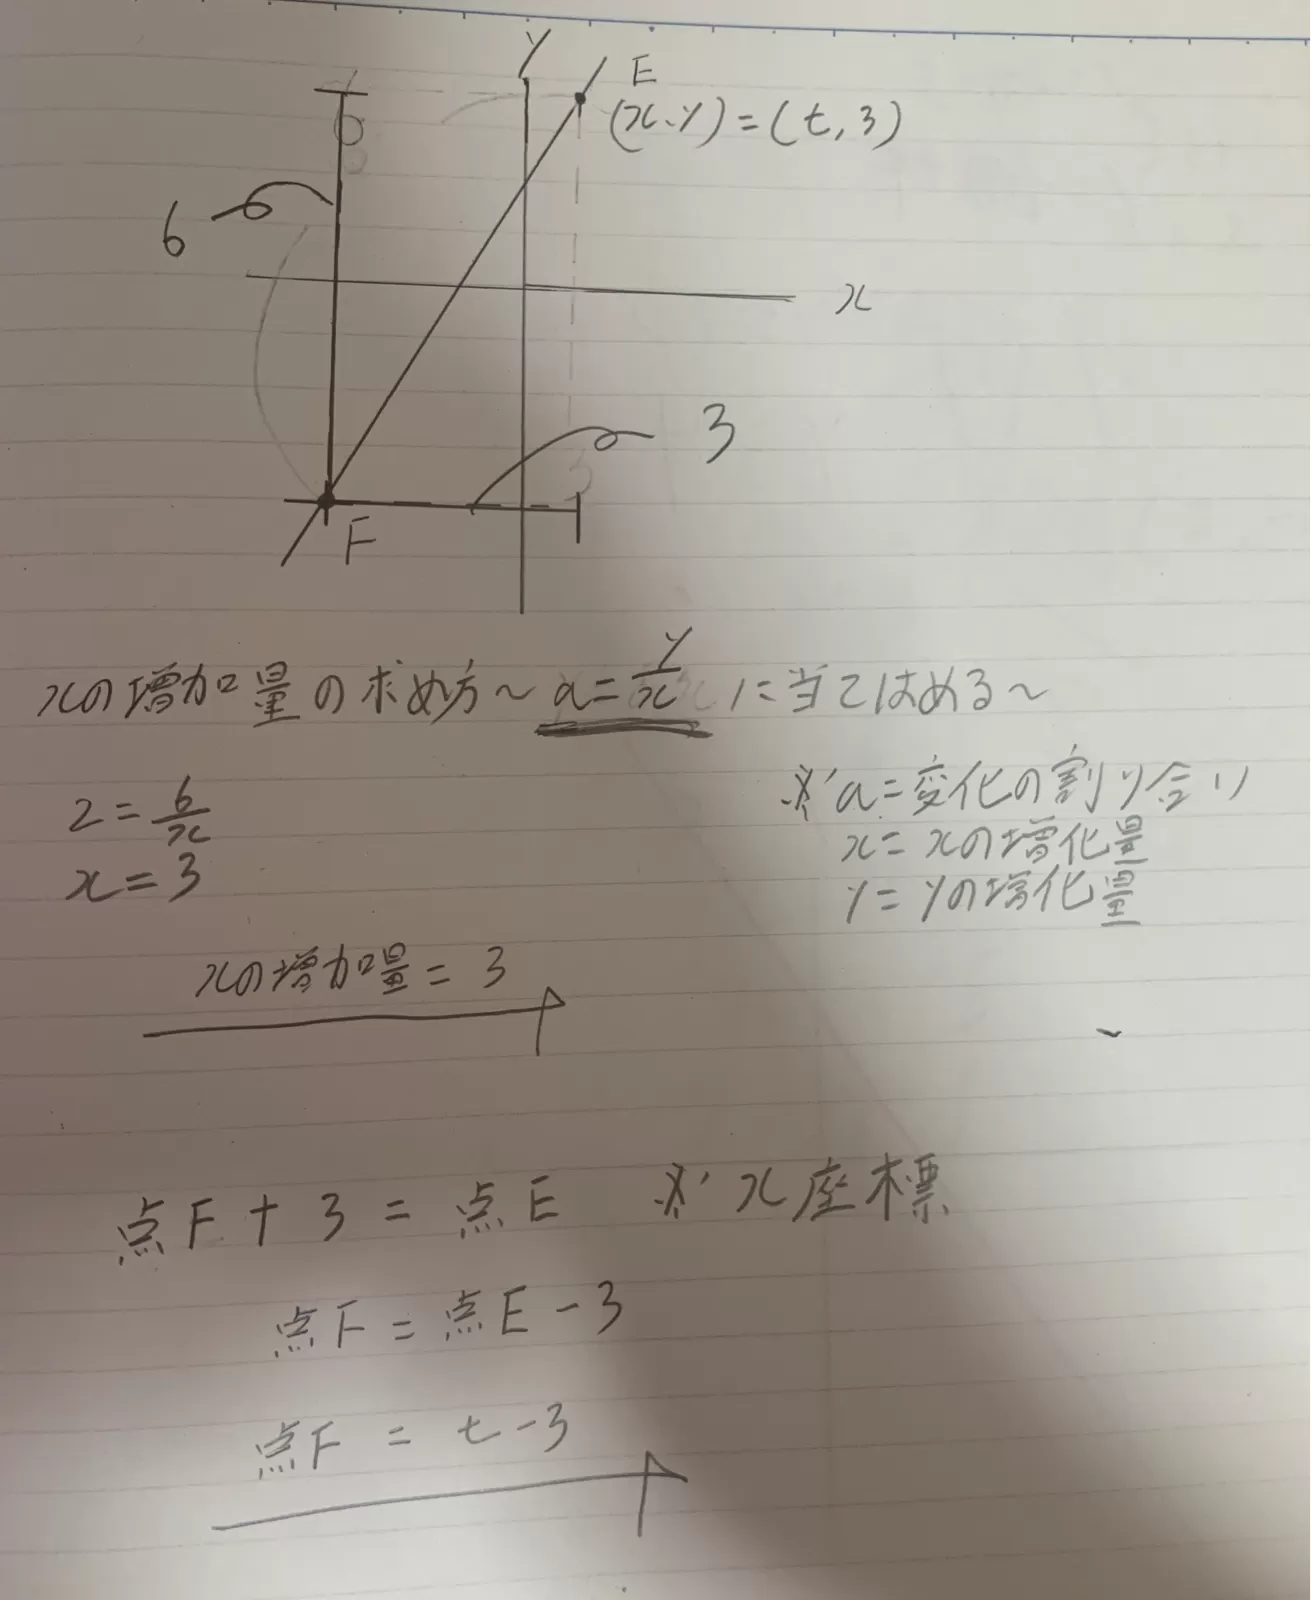 y
E
(x、y)=(t,3)
6
x
3
F
xの増加量の求め方～a=y/xに当てはめる～
2=6/x
x=3
※a=変化の割り合い
x=xの増化量
y=yの増化量
xの増加量=3
点F+3=点E ※x座標
点F=点E-3
点F=t-3